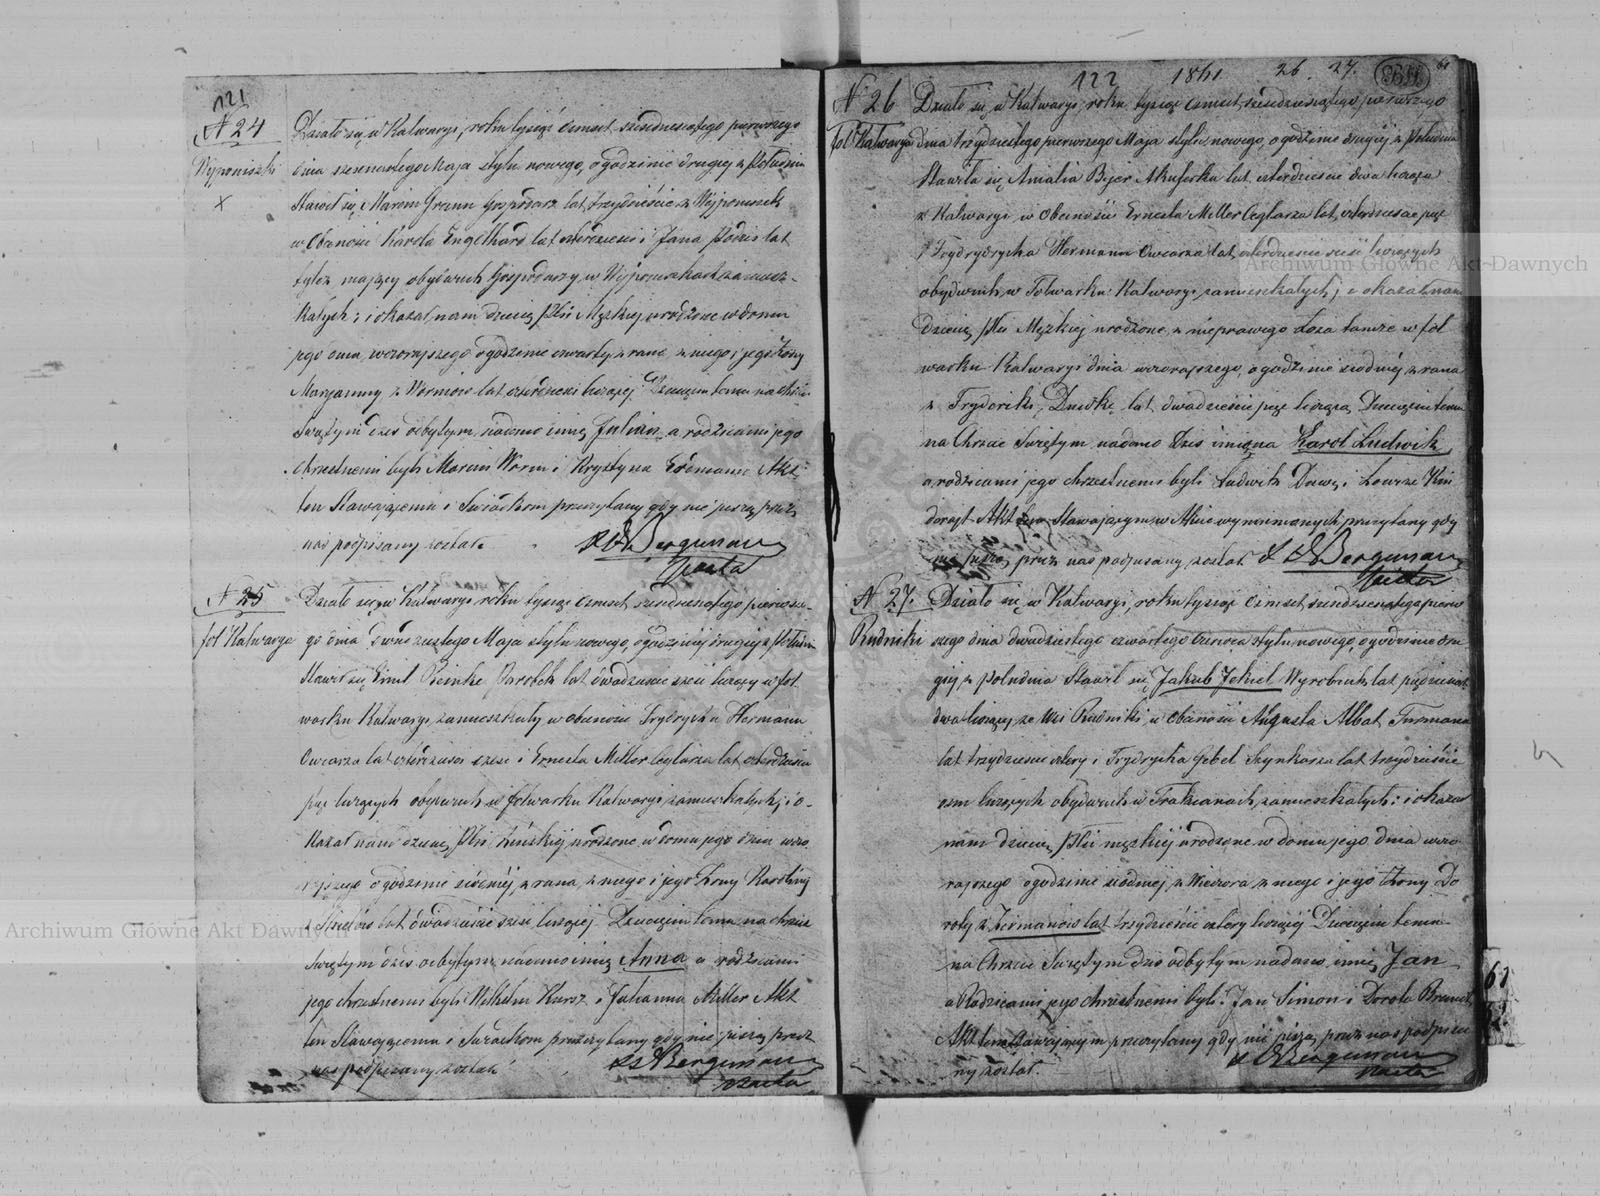 121
N 24
Wyponiszki
Działo się w Kalwaryi, roku tysiąc ośmset sześdziesiątego pierwszego
dnia szesnastego Maja stylu nowego, o godzinie drugiej z południa
Stawił się Marcin Grann Gospodarz lat trzydzieście z
w Obecności Karola Engelhard lat czterdzieści i Jana lat
tyleż mający obydwóch Gospodarzy w zamiesz-
kałych; i okazał nam dziecię płci Męzkiej urodzone w domu
jego dnia wczorajszego o godzinie czwarty z rana z niego i jego Żony
Maryanny z Wormów lat czterdzieści liczącej Dziecięciu temu na Chrzcie
Świętym dziś odbytym nadano imię Julian, a rodzicami jego
chrzestnemi byli Marcin Worm i Krystyna Akt
ten Stawającemu i Świadkom przeczytany gdy nie piszą przez
nas podpisany został.
Bergmann
Pastor
N 25
fol Kalwarya
Działo się w Kalwaryi roku tysiąc ośmset sześdziesiątego pierwsze-
go dnia Maja stylu nowego, o godzinie drugiej z południa
Stawił się Emil Reinke Parobek lat dwadzieście sześć liczący w fol
warku Kalwaryi zamieszkały w obecności Frydrycha Hermann
Owczarza lat czterdzieści sześć i Ernesta Miller Ceglarza lat czterdzieści
pięć liczących obydwóch w folwarku Kalwaryi zamieszkałych; i o-
kazał nam dziecię płci Żeńskiej urodzone w domu jego dnia wczo
rajszego o godzinie siódmej z rana z niego i jego Żony Karoliny
z lat dwadzieście sześć liczącej Dziecięciu temu na chrzcie
Świętym dziś odbytym nadano imię Anna a rodzicami
jego chrzestnemi byli Wilhelm Kursz i Julianna Miller Akt
ten Stawającemu i Świadkom przeczytany gdy nie piszą przez
nas podpisany został
Bergmann
Pastor
122 1861 26. 27. 61
N 26
fol Kalwarya
Działo się w Kalwaryi, roku tysiąc ośmset sześdziesiątego pierwszego
dnia trzydziestego pierwszego Maja stylu nowego, o godzinie drugiej z południa
Stawiła się Amalia Bejer Akuszerka lat czterdzieście dwa licząca
z Kalwaryi w Obecności Ernesta Miller Ceglarza lat czterdzieście pięć
i Frydrycha Hermann Owczarza lat czterdzieście sześć liczących
obydwóch w Folwarku Kalwaryi zamieszkałych; i okazała nam
Dziecię płci Męzkiej urodzone z nieprawego Łoża tamże w fol
warku Kalwaryi dnia wczorajszego o godzinie siódmej z rana
z Fryderiki lat dwadzieście pięć liczącą Dziecięciu temu
na Chrzcie Świętym nadano Dziś imiona Karol Ludwik
a rodzicami jego chrzestnemi byli Ludwik i Lowize
Akt ten Stawającym w Akcie wymienionych przeczytany gdy
nie piszą przez nas podpisany został
Bergmann
Pastor
N 27.
Rudniki
Działo się w Kalwaryi, roku tysiąc ośmset sześdziesiątego pierw
szego dnia dwudziestego czwartego Czerwca stylu nowego, o godzinie dru
giej z południa Stawił się Jakub Jekiel Wyrobnik lat pięćdziesiąt
dwa liczący ze Wsi Rudniki, w Obecności Augusta Albat Furmana
lat trzydzieście cztery i Frydrycha Gebel Szynkarza lat trzydzieście
osm liczących obydwóch w Trakianach zamieszkałych; i okazał
nam dziecię płci męzkiej urodzone w domu jego dnia wczo
rajszego o godzinie siódmej z Wieczora z niego i jego Żony Do
roty z lat trzydzieście cztery liczącej Dziecięciu temu
na Chrzcie Świętym dziś odbytym nadano imię Jan
a Rodzicami jego chrzestnemi byli Jan Simon i Dorota
Akt ten Stawającym przeczytany gdy nie piszą przez nas podpisa
ny został.
Bergmann
Pastor
Archiwum Główne Akt Dawnych
Archiwum Główne Akt Dawnych